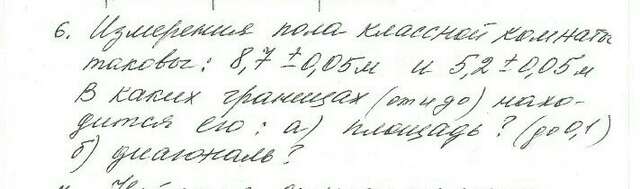 6. Измерения пола классной комнаты
таковы: 8,7 ± 0,05 м и 5,2 ± 0,05 м
В каких границах (от и до) нахо-
дится его: а) площадь? (до 0,1)
б) диагональ?